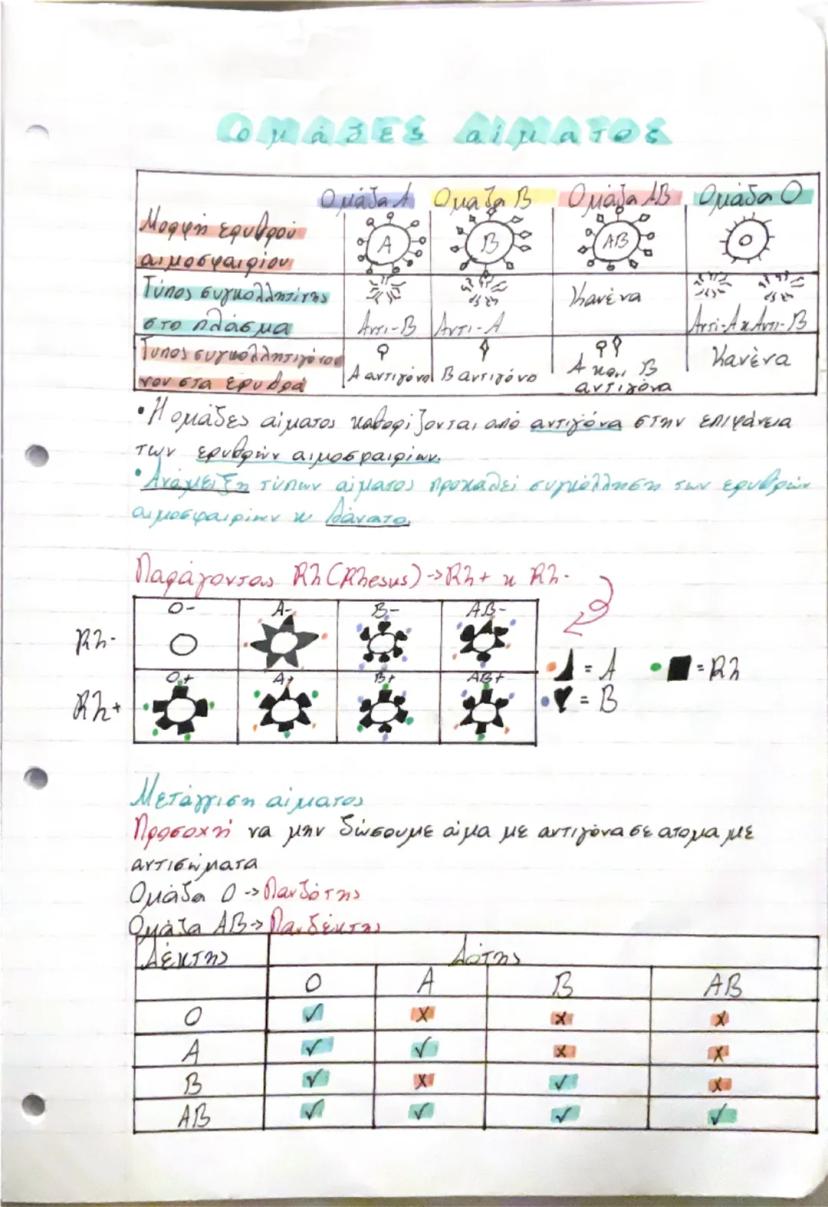 Ομάδες αίματος
Ομάδα Α Ομάδα Β Ομάδα ΑΒ Ομάδα Ο
Μορφή ερυθρού
αιμοσφαιρίου
A B AB O
Τύπος συγκολλητίνης
στο πλάσμα
Αντι-Β Αντι-Α Κανένα Αντι-Α κ Αντι-Β
Τύπος συγκολλητιγόνου
νου στα ερυθρά
Α αντιγόνο Β αντιγόνο Α και Β αντιγόνα Κανένα
• Η ομάδες αίματος καθορίζονται από αντιγόνα στην επιφάνεια
των ερυθρών αιμοσφαιρίων.
• Ανάμειξη τύπων αίματος προκαλεί συγκόλληση των ερυθρών
αιμοσφαιρίων κ θάνατο.
Παράγοντας Rh (Rhesus) → Rh+ κ Rh-
O- A- B- AB-
Rh-
O+ A+ B+ AB+
Rh+
= A = Rh
= B
Μετάγγιση αίματος
Προσοχή να μην δώσουμε αίμα με αντιγόνα σε άτομα με
αντισώματα
Ομάδα Ο → Πανδότης
Ομάδα ΑΒ → Πανδέκτης
Δέκτης Δότης
O A B AB
O ✓ x x x
A ✓ ✓ x x
B ✓ x ✓ x
AB ✓ ✓ ✓ ✓